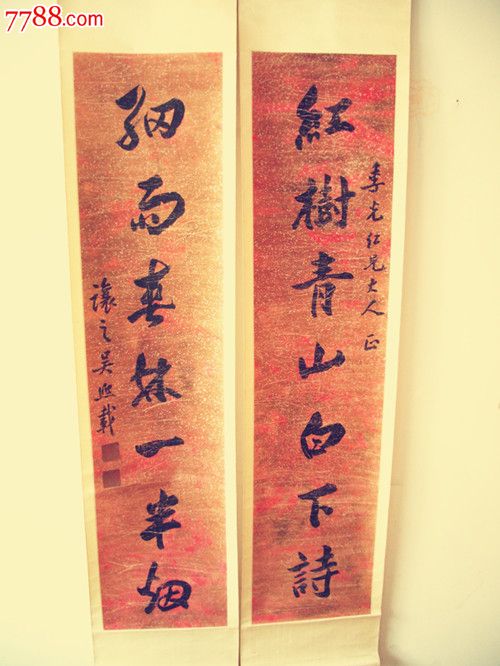 7788.com
季兄大人正
紅樹青山白下詩
細雨春林一半烟
讓之吳熙載